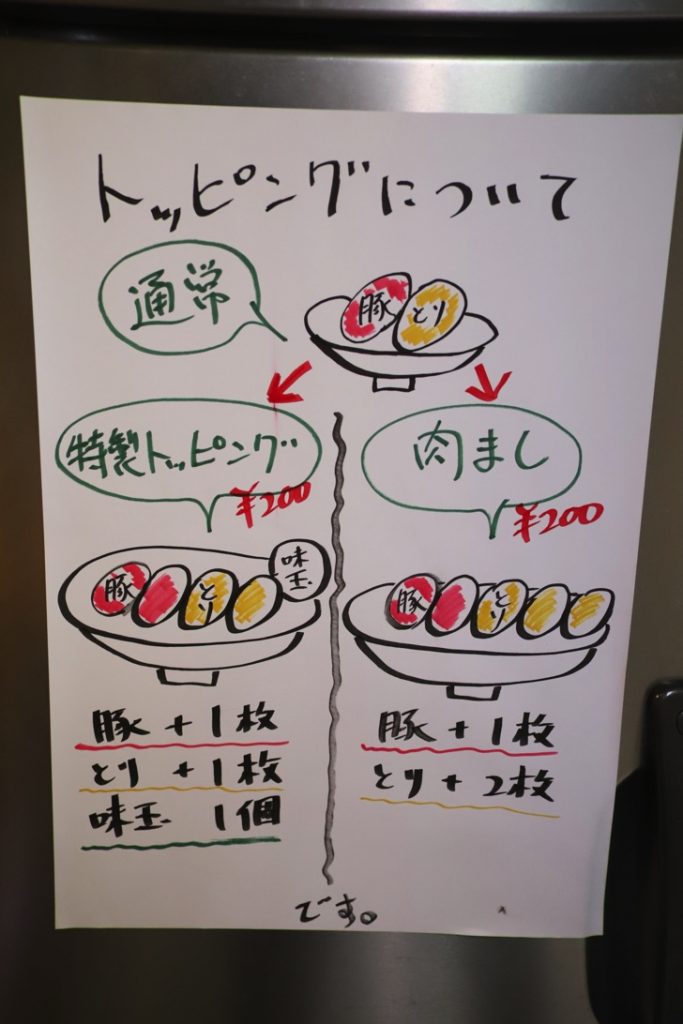 トッピングについて
通常
豚 とり
特製トッピング
¥200
豚 とり 味玉
豚 + 1枚
とり + 1枚
味玉 1個
肉まし
¥200
豚 とり
豚 + 1枚
とり + 2枚
です。